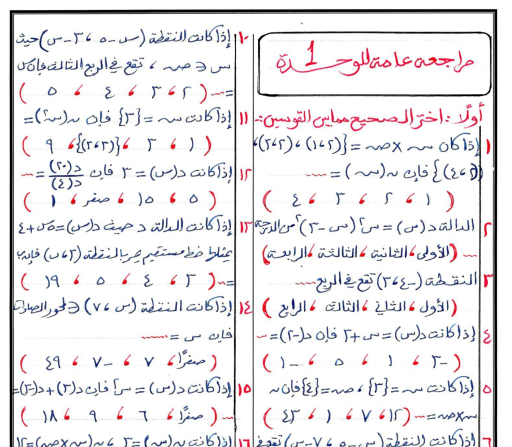 مراجعة عامة للوحدة 1
أولًا : اختر الصحيح مما بين القوسين :-
١ إذا كان س × ص = {(١،٢)، (٢،٢)،
(٤،٥)} فإن ن(س) = ----
( ١ ، ٢ ، ٣ ، ٤ )
٢ الدالة د(س) = س٢(س - ٣)٢ من الدرجة
--- (الأولى ، الثانية ، الثالثة ، الرابعة)
٣ النقطة (-٤،٣) تقع في الربع ----
(الأول ، الثاني ، الثالث ، الرابع)
٤ إذا كانت د(س) = س + ٣ فإن د(-٢) = --
( -٣ ، ١ ، ٥ ، -١ )
٥ إذا كانت س = {٣}، ص = {٤} فإن ن
س × ص = -- (١٢ ، ٧ ، ١ ، ٤٣)
١٠ إذا كانت النقطة (س-٥، ٣-س) حيث
س ∈ ص ، تقع في الربع الثالث فإن س
= -- ( ٢ ، ٣ ، ٤ ، ٥ )
١١ إذا كانت س = {٣} فإن ن(س٢) =
( ١ ، ٣ ، {(٣،٣)} ، ٩ )
١٢ إذا كانت د(س) = ٣ فإن د(٢٠)/د(٤) = --
( ٥ ، ١٥ ، صفر ، ١ )
١٣ إذا كانت الدالة د حيث د(س) = ٥س + ٤
يمثلها خط مستقيم يمر بالنقطة (٣، ب) فإن ب
= -- ( ٣ ، ٤ ، ٥ ، ١٩ )
١٤ إذا كانت النقطة (س، ٧) ∈ محور الصادات
فإن س = ------
( صفرًا ، ٧ ، -٧ ، ٤٩ )
١٥ إذا كانت د(س) = س٢ فإن د(٣) + د(-٣) =
-- ( صفرًا ، ٦ ، ٩ ، ١٨ )